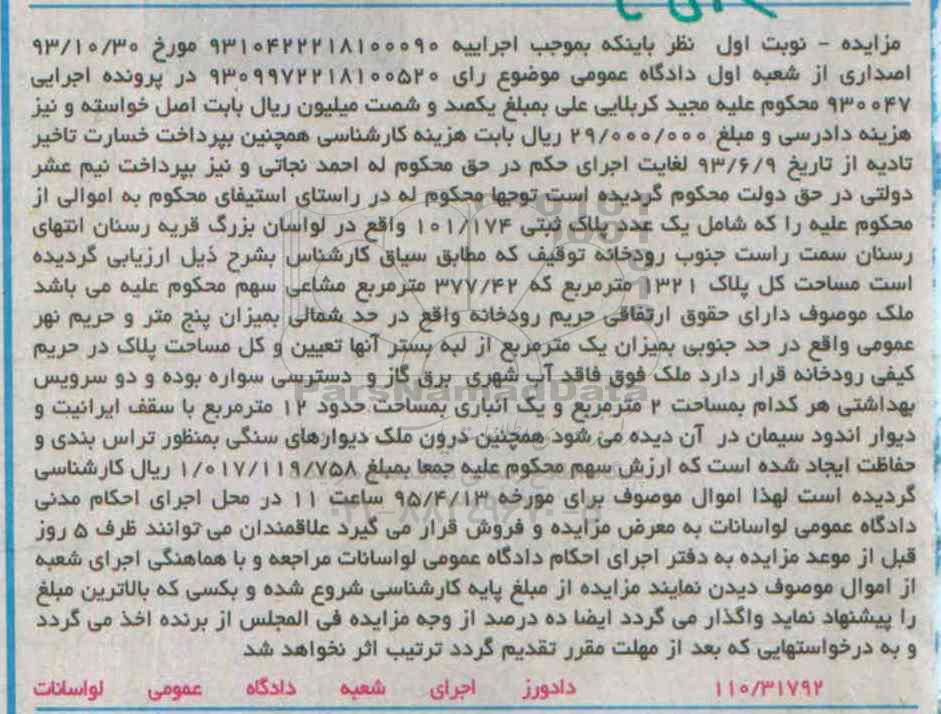 مزایده - نوبت اول نظر باینکه بموجب اجراییه ۹۳۱۰۴۲۲۲۱۸۱۰۰۰۹۰ مورخ ۹۳/۱۰/۳۰
اصداری از شعبه اول دادگاه عمومی موضوع رای ۹۳۰۹۹۷۲۲۱۸۱۰۰۵۲۰ در پرونده اجرایی
۹۳۰۰۴۷ محکوم علیه مجید کربلایی علی بمبلغ یکصد و شصت میلیون ریال بابت اصل خواسته و نیز
هزینه دادرسی و مبلغ ۲۹/۰۰۰/۰۰۰ ریال بابت هزینه کارشناسی همچنین بپرداخت خسارت تاخیر
تادیه از تاریخ ۹۳/۶/۹ لغایت اجرای حکم در حق محکوم له احمد نجاتی و نیز بپرداخت نیم عشر
دولتی در حق دولت محکوم گردیده است توجها محکوم له در راستای استیفای محکوم به اموالی از
محکوم علیه را که شامل یک عدد پلاک ثبتی ۱۰۱/۱۷۴ واقع در لواسان بزرگ قریه رسنان انتهای
رسنان سمت راست جنوب رودخانه توقیف که مطابق سیاق کارشناس بشرح ذیل ارزیابی گردیده
است مساحت کل پلاک ۱۳۲۱ مترمربع که ۳۷۷/۴۲ مترمربع مشاعی سهم محکوم علیه می باشد
ملک موصوف دارای حقوق ارتفاقی حریم رودخانه واقع در حد شمالی بمیزان پنج متر و حریم نهر
عمومی واقع در حد جنوبی بمیزان یک مترمربع از لبه بستر آنها تعیین و کل مساحت پلاک در حریم
کیفی رودخانه قرار دارد ملک فوق فاقد آب شهری برق گاز و دسترسی سواره بوده و دو سرویس
بهداشتی هر کدام بمساحت ۲ مترمربع و یک انباری بمساحت حدود ۱۲ مترمربع با سقف ایرانیت و
دیوار اندود سیمان در آن دیده می شود همچنین درون ملک دیوارهای سنگی بمنظور تراس بندی و
حفاظت ایجاد شده است که ارزش سهم محکوم علیه جمعا بمبلغ ۱/۰۱۷/۱۱۹/۷۵۸ ریال کارشناسی
گردیده است لهذا اموال موصوف برای مورخه ۹۵/۴/۱۳ ساعت ۱۱ در محل اجرای احکام مدنی
دادگاه عمومی لواسانات به معرض مزایده و فروش قرار می گیرد علاقمندان می توانند ظرف ۵ روز
قبل از موعد مزایده به دفتر اجرای احکام دادگاه عمومی لواسانات مراجعه و با هماهنگی اجرای شعبه
از اموال موصوف دیدن نمایند مزایده از مبلغ پایه کارشناسی شروع شده و بکسی که بالاترین مبلغ
را پیشنهاد نماید واگذار می گردد ایضا ده درصد از وجه مزایده فی المجلس از برنده اخذ می گردد
و به درخواستهایی که بعد از مهلت مقرر تقدیم گردد ترتیب اثر نخواهد شد
۱۱۰/۳۱۷۹۲ دادورز اجرای شعبه دادگاه عمومی لواسانات
ParsNamadData